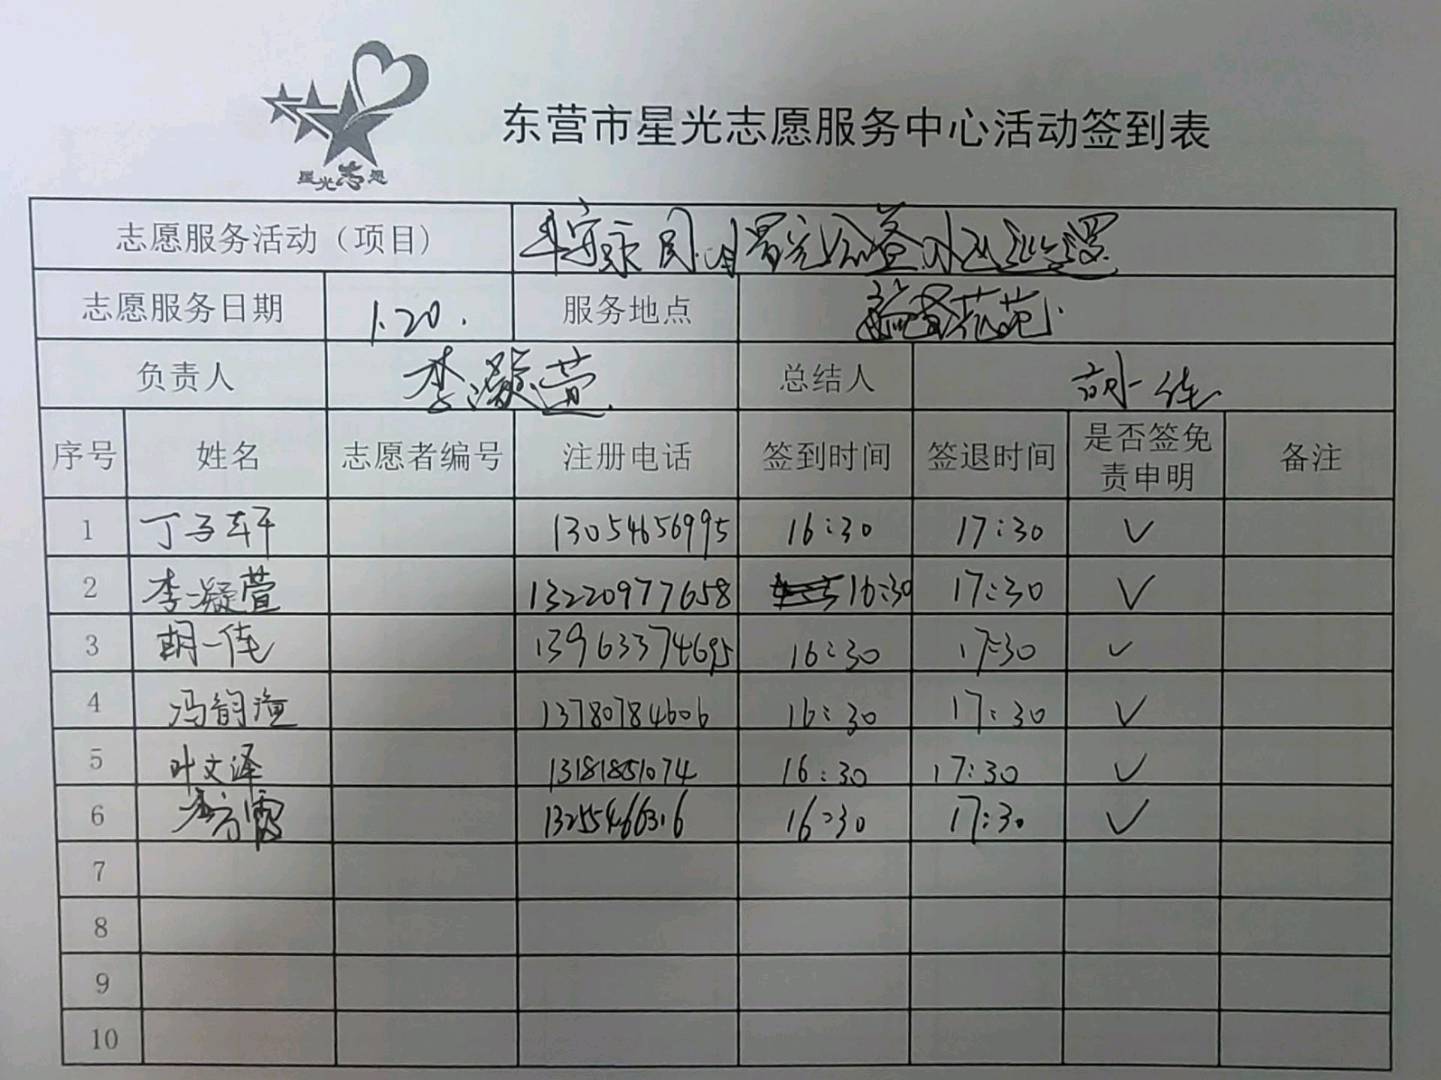 星光志愿
东营市星光志愿服务中心活动签到表
志愿服务活动（项目）
志愿服务日期 1.20. 服务地点
负责人 李凝萱 总结人 胡一佳
序号 姓名 志愿者编号 注册电话 签到时间 签退时间 是否签免责申明 备注
1 丁子轩 13054656995 16:30 17:30 ✓
2 李凝萱 13220977658 16:30 17:30 ✓
3 胡一佳 13963374695 16:30 17:30 ✓
4 冯韵潼 13780784606 16:30 17:30 ✓
5 叶文泽 13181851074 16:30 17:30 ✓
6 13255466316 16:30 17:30 ✓
7
8
9
10